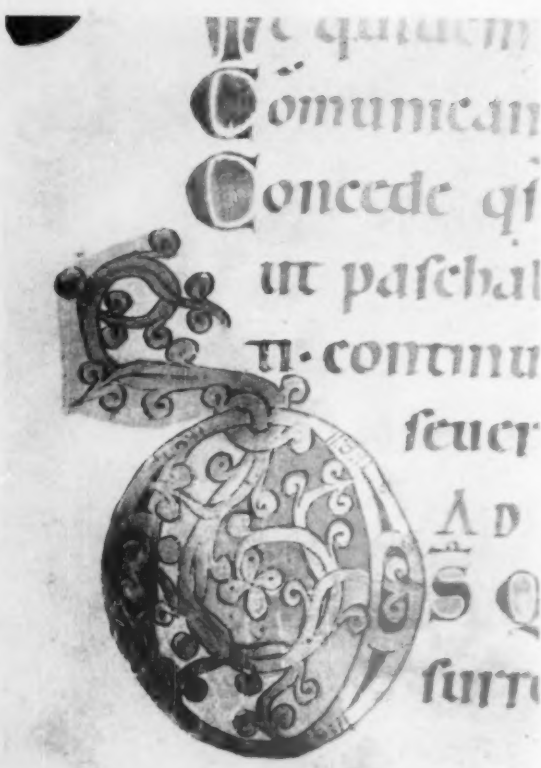 Te quidem
Cōmunican
Concede qſ
ut paſchal
ti · continu
ſeuer
AD
DS Q
ſurr